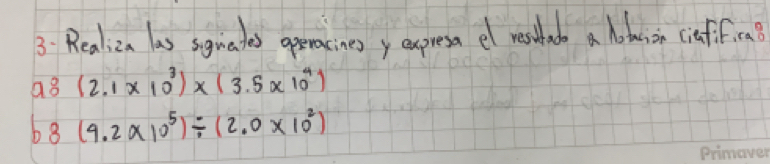 3- Realiza las siguiates operacines y expresa el resultado a Notación cientifica:
a: (2.1 x 10³) x (3.5 x 10⁴)
b: (9.2 x 10⁵) ÷ (2.0 x 10²)
Primaver